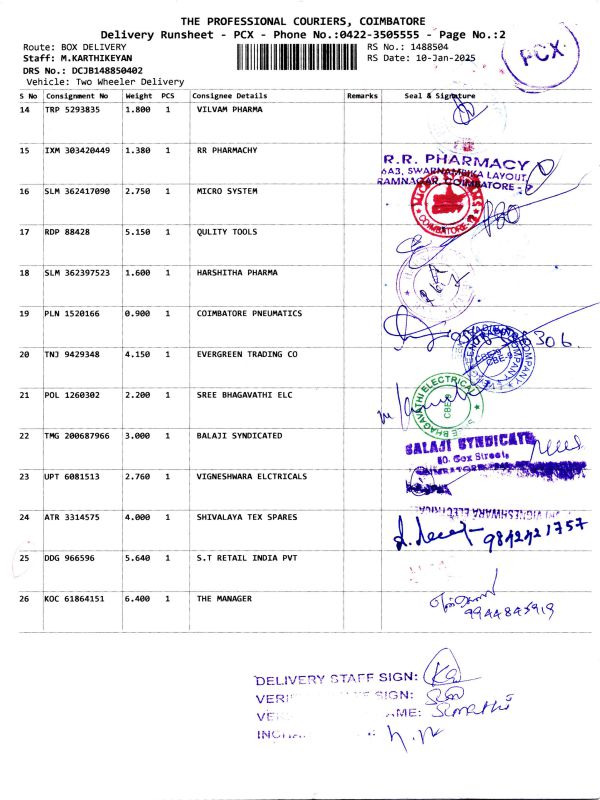 THE PROFESSIONAL COURIERS, COIMBATORE
Delivery Runsheet - PCX - Phone No.:0422-3505555 - Page No.:2
Route: BOX DELIVERY RS No.: 1488504
Staff: M.KARTHIKEYAN RS Date: 10-Jan-2025
DRS No.: DCJB148850402
Vehicle: Two Wheeler Delivery
PCX
S No Consignment No Weight PCS Consignee Details Remarks Seal & Signature
14 TRP 5293835 1.800 1 VILVAM PHARMA
15 IXM 303420449 1.380 1 RR PHARMACHY
R.R. PHARMACY
6A3, SWARNAMBIKA LAYOUT,
RAMNAGAR, COIMBATORE - 9
16 SLM 362417090 2.750 1 MICRO SYSTEM
COIMBATORE
17 RDP 88428 5.150 1 QULITY TOOLS
18 SLM 362397523 1.600 1 HARSHITHA PHARMA
19 PLN 1520166 0.900 1 COIMBATORE PNEUMATICS
20 TNJ 9429348 4.150 1 EVERGREEN TRADING CO
CBE-9
21 POL 1260302 2.200 1 SREE BHAGAVATHI ELC
SREE BHAGAVATHI ELECTRICAL
CBE-9
22 TMG 200687966 3.000 1 BALAJI SYNDICATED
BALAJI SYNDICATE
80, Gox Street,
23 UPT 6081513 2.760 1 VIGNESHWARA ELCTRICALS
VIGNESHWARA ELECTRICAL
24 ATR 3314575 4.000 1 SHIVALAYA TEX SPARES
9842421757
25 DDG 966596 5.640 1 S.T RETAIL INDIA PVT
26 KOC 61864151 6.400 1 THE MANAGER
9944845919
DELIVERY STAFF SIGN:
SIGN:
AME: Sumathi